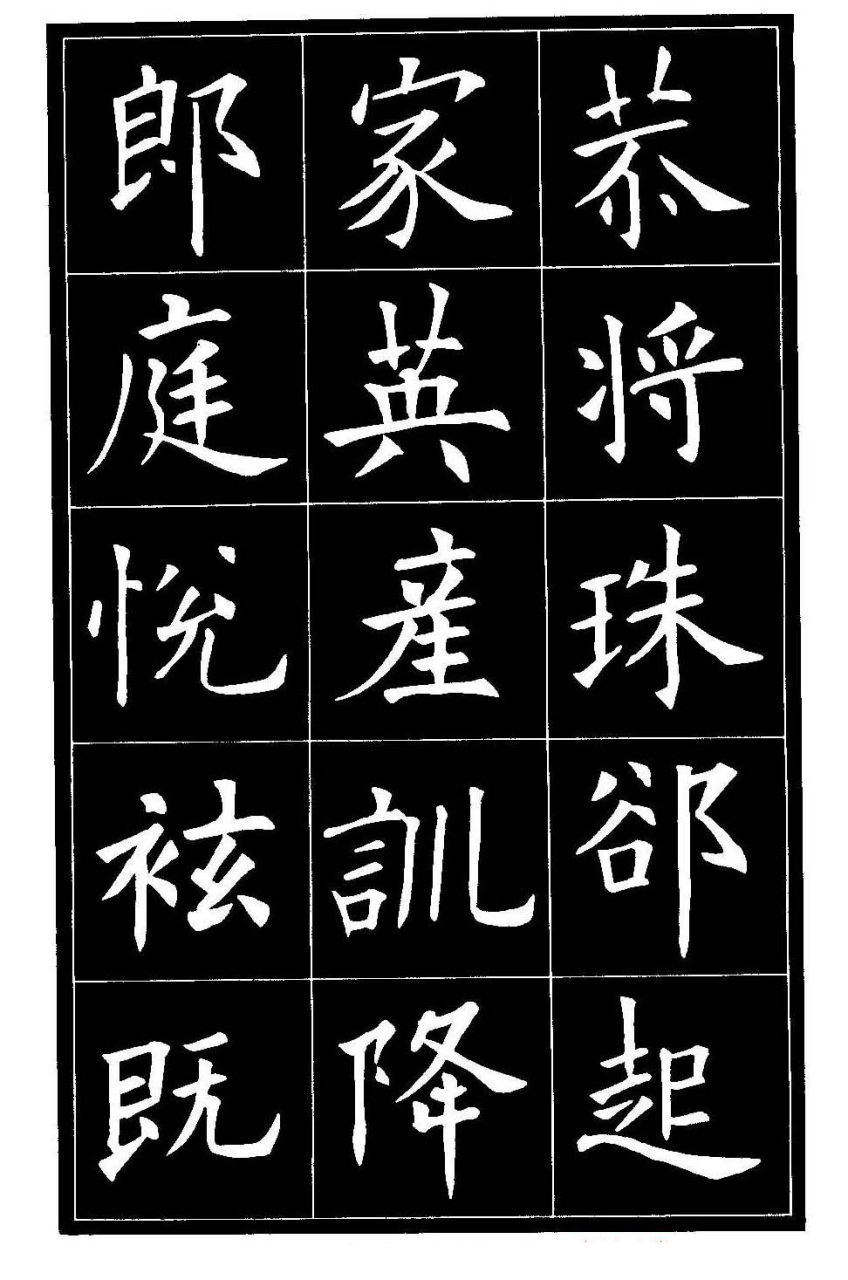 恭将珠郤起
家英產訓降
郎庭悅袨既